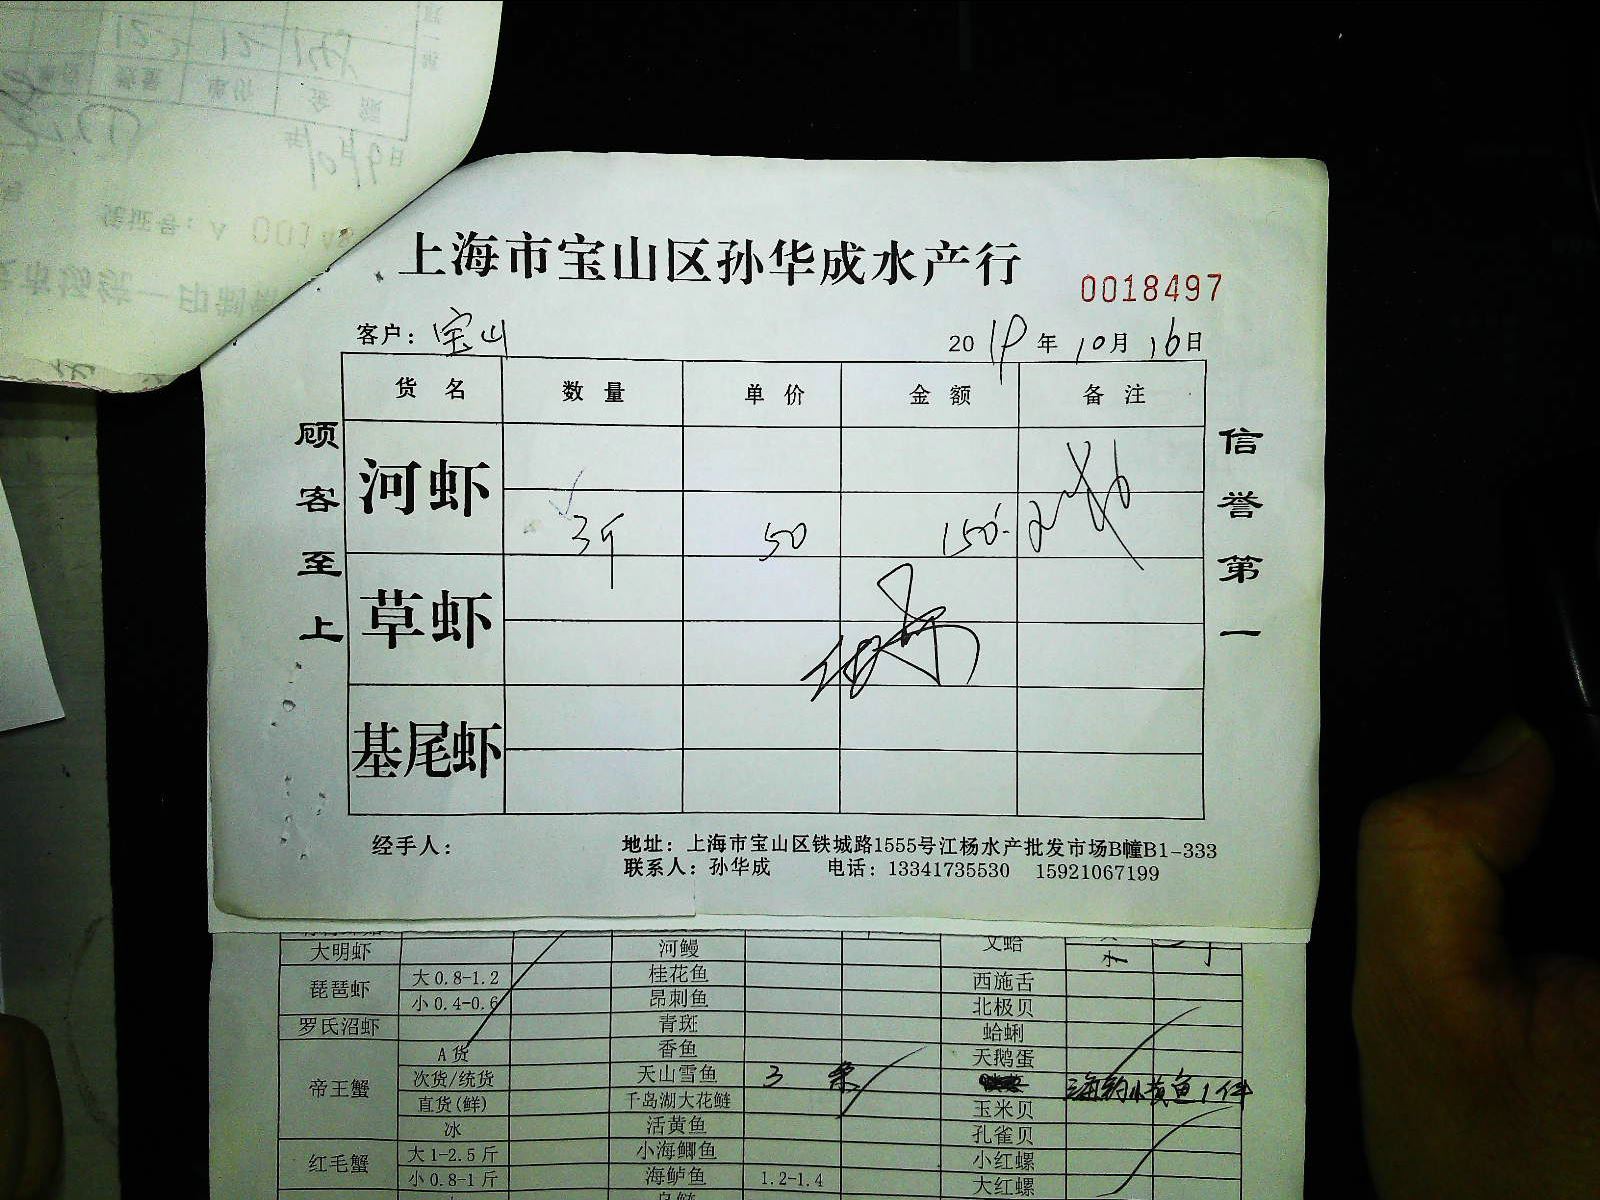 上海市宝山区孙华成水产行
0018497
客户：宝山
2019年10月16日
货名 数量 单价 金额 备注
河虾 3斤 50 150-
草虾
基尾虾
顾客至上
信誉第一
经手人：
地址：上海市宝山区铁城路1555号江杨水产批发市场B幢B1-333
联系人：孙华成 电话：13341735530 15921067199
大明虾 河鳗 文蛤
琵琶虾 大0.8-1.2 桂花鱼 西施舌
小0.4-0.6 昂刺鱼 北极贝
罗氏沼虾 青斑 蛤蜊
帝王蟹 A货 香鱼 天鹅蛋
次货/统货 天山雪鱼 3 条 海钓小黄鱼1件
直货(鲜) 千岛湖大花鲢 玉米贝
冰 活黄鱼 孔雀贝
红毛蟹 大1-2.5斤 小海鲫鱼 小红螺
小0.8-1斤 海鲈鱼 1.2-1.4 大红螺